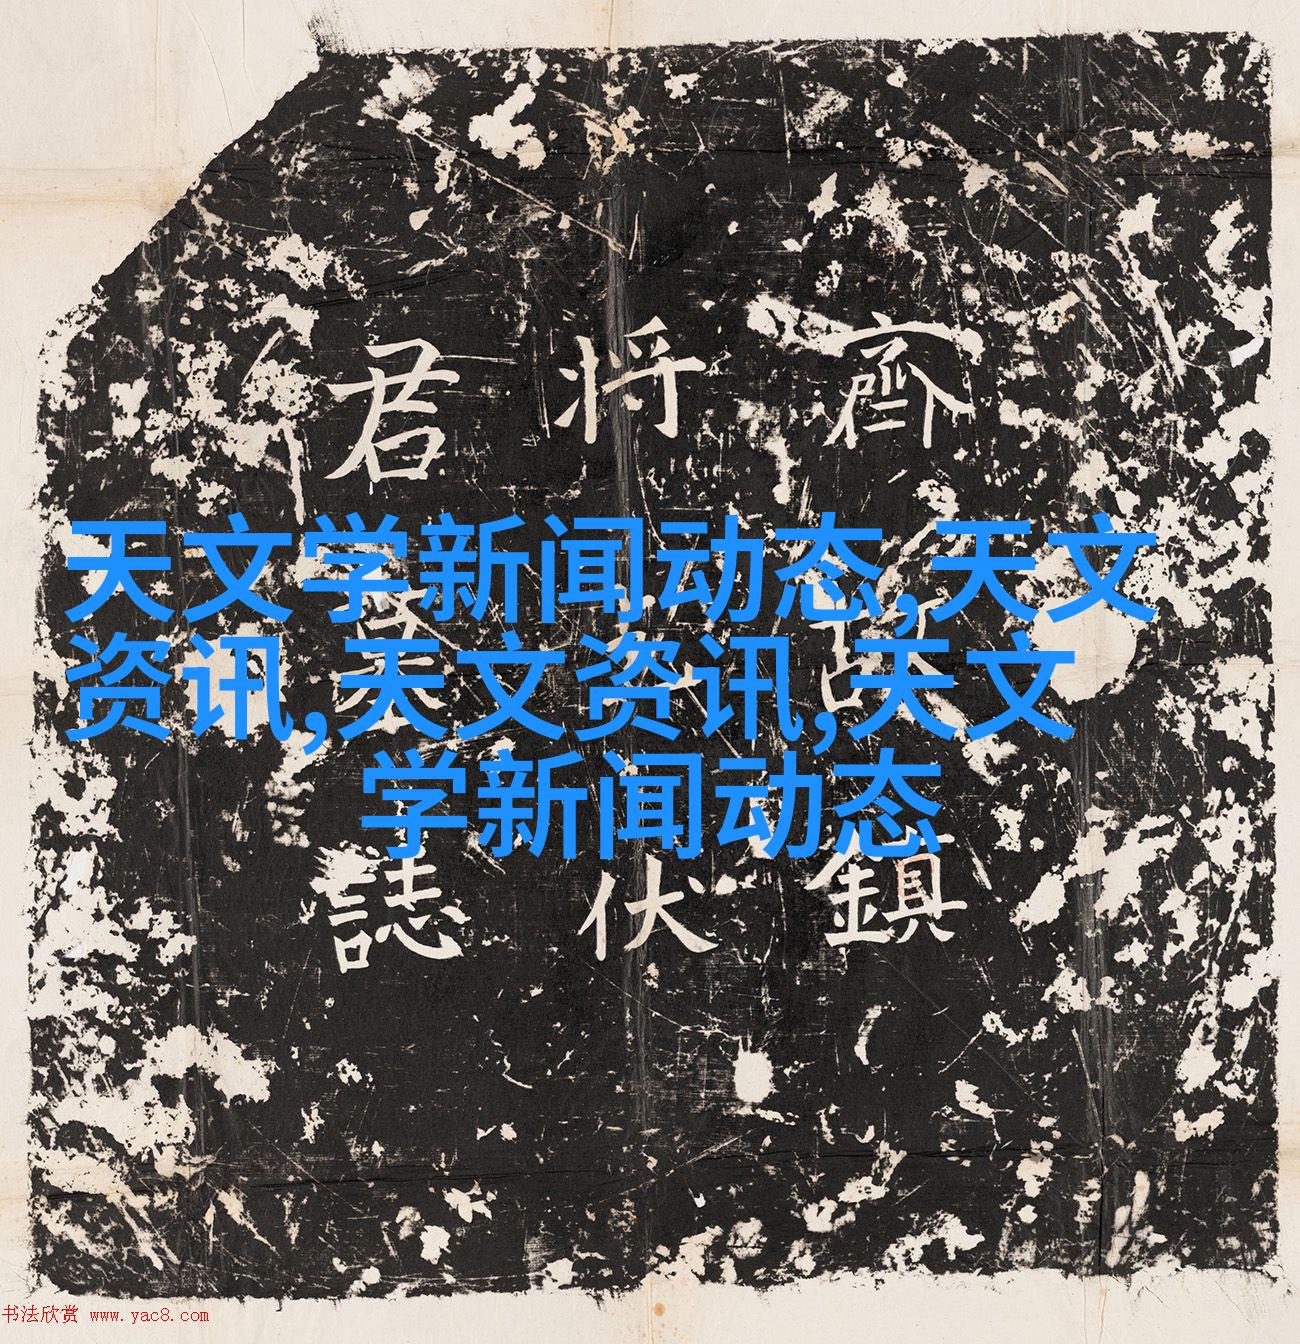 天文学新闻动态,天文
资讯,天文资讯,天文
学新闻动态
齊鎮
将伏
君墓誌
书法欣赏 www.yac8.com